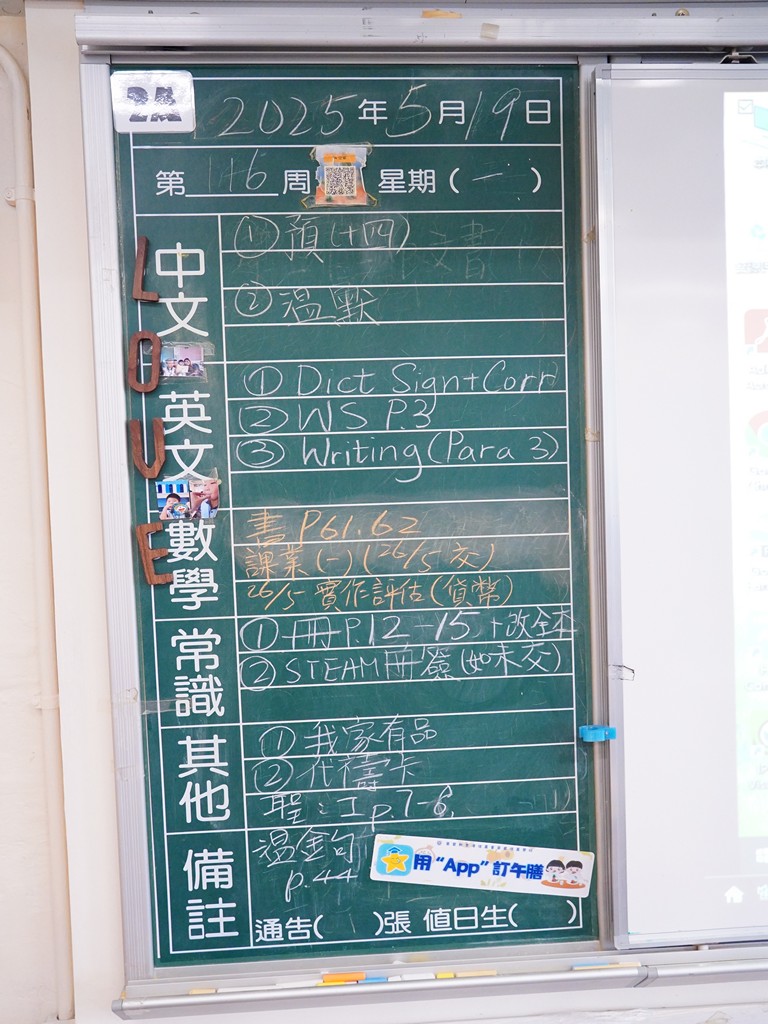 2A
2025年5月19日
第 周 星期(一)
中文
①預(十四)
②溫默
LOVE
英文
①Dict Sign+Corr
②WS P.3
③Writing(Para 3)
數學
書 P61.62
課業(一)(26/5交)
26/5 實作評估(貨幣)
常識
①冊P.12-15 +改全本
②STEAM冊簽(如未交)
其他
①我家有品
②代禱卡
聖:工p.7-8,
備註
溫金句
p.44
用“App”訂午膳
通告( )張 值日生( )